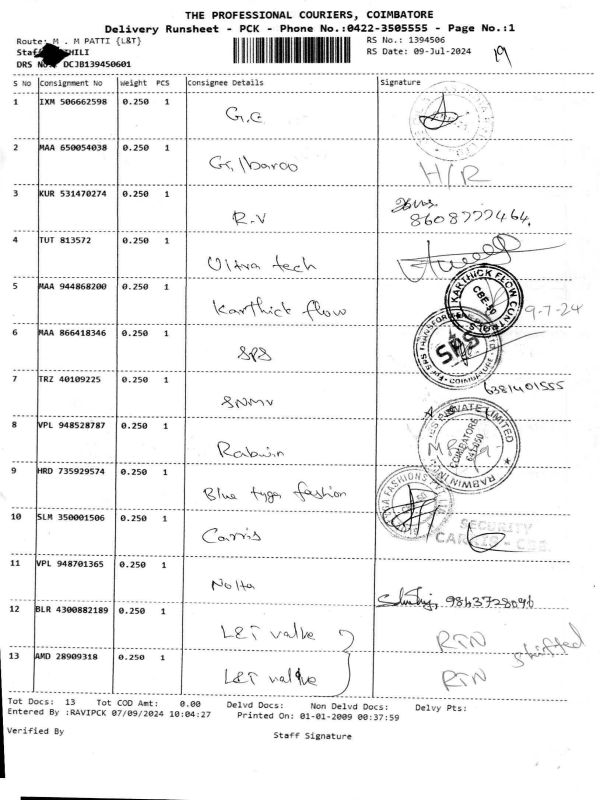 THE PROFESSIONAL COURIERS, COIMBATORE
Delivery Runsheet - PCK - Phone No.:0422-3505555 - Page No.:1
Route: M . M PATTI {L&T} RS No.: 1394506
RS Date: 09-Jul-2024 19
DRS No.: DCJB139450601
S No Consignment No Weight PCS Consignee Details Signature
1 IXM 506662598 0.250 1
G.C
2 MAA 650054038 0.250 1
H/R
3 KUR 531470274 0.250 1
R.V 8608777464.
4 TUT 813572 0.250 1
Ultra tech
5 MAA 944868200 0.250 1
Karthick flow
KARTHICK FLOW CONTROLS
9-7-24
6 MAA 866418346 0.250 1
SPS
SPS
7 TRZ 40109225 0.250 1
SNMV
6381401555
8 VPL 948528787 0.250 1
Rabwin
PRIVATE LIMITED
COIMBATORE
RABWIN
9 HRD 735929574 0.250 1
Blue tyger fashion
FASHIONS PVT LTD
10 SLM 350001506 0.250 1
Carris
SECURITY
11 VPL 948701365 0.250 1
Nolta 9843728096
12 BLR 4300882189 0.250 1
L&T valve RTN
shifted
13 AMD 28909318 0.250 1
L&T valve RTN
Tot Docs: 13 Tot COD Amt: 0.00 Delvd Docs: Non Delvd Docs: Delvy Pts:
Entered By :RAVIPCK 07/09/2024 10:04:27 Printed On: 01-01-2009 00:37:59
Verified By
Staff Signature